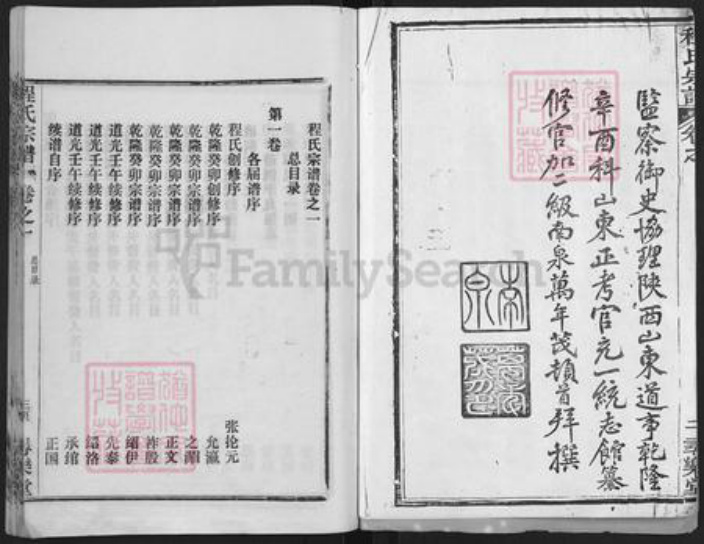 監察御史協理陝西山東道事乾隆
辛酉科山東正考官充一統志館纂
修官加二級南泉萬年茂頓首拜撰
南泉
程氏宗譜卷之一
程氏宗谱卷之一
总目录
第一卷
各届谱序
程氏创修序 张抡元
乾隆癸卯创修序 允瀛
乾隆癸卯宗谱序 之
乾隆癸卯宗谱序 正文
乾隆癸卯宗谱序 祚殷
乾隆癸卯宗谱序 绍伊
道光壬午续修序 先泰
道光壬午续修序 绍洛
道光壬午续修序 承绾
续谱自序 正国
程氏宗谱
卷之一
总目录
FamilySearch